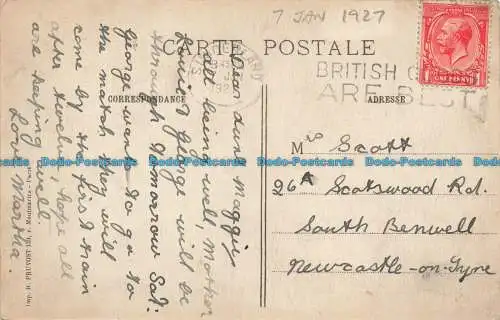 7 JAN 1927
CARTE POSTALE
BRITISH G
ARE BEST
CORRESPONDANCE
ADRESSE
ONE PENNY
Dear Aunt Maggie,
all being well, Mother
Louie & George will be
through tomorrow Sat:
George wants to go to
the match they will
come by the first train
after twelve. hope all
are keeping well
Love Martha.
Mrs Scott
26A Scotswood Rd.
South Benwell
Newcastle-on-Tyne
Dodo-Postcards Dodo-Postcards Dodo-Postcards Dodo-Postcards
Dodo-Postcards Dodo-Postcards Dodo-Postcards Dodo-Postcards